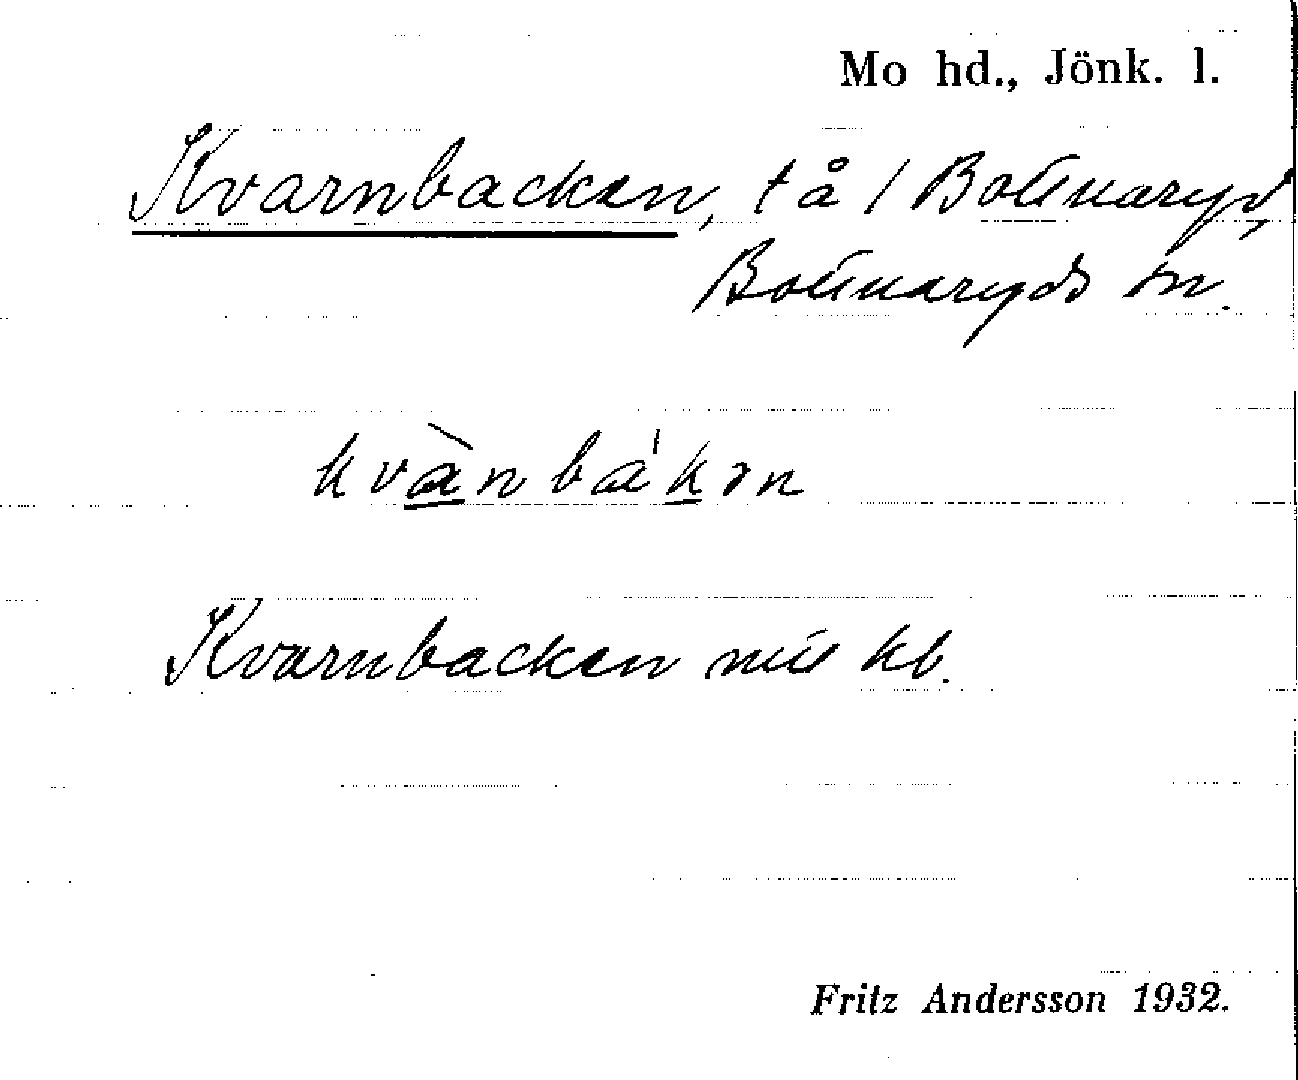 Mo hd., Jönk. l.
Kvarnbacken, tå / Bottnaryd,
Bottnaryds sn.
kvànbákən
Kvarnbacken kb.
Fritz Andersson 1932.